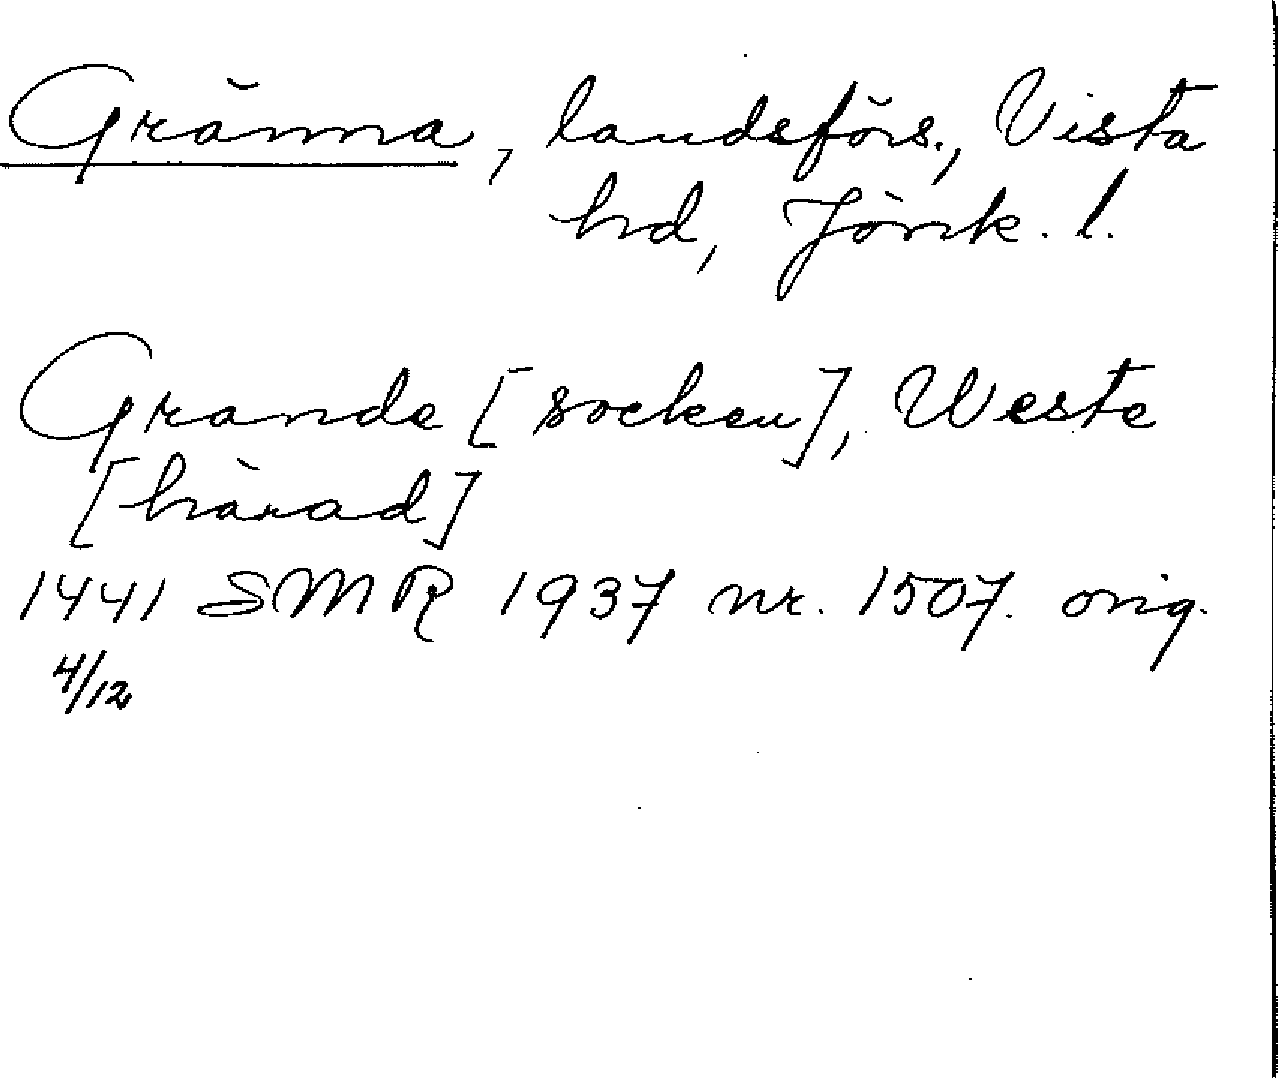 Gränna, landsförs., Vista
hd, Jönk. l.
Grande [socken], Weste
[härad]
1441 SMR 1937 nr. 1507. orig.
4/12